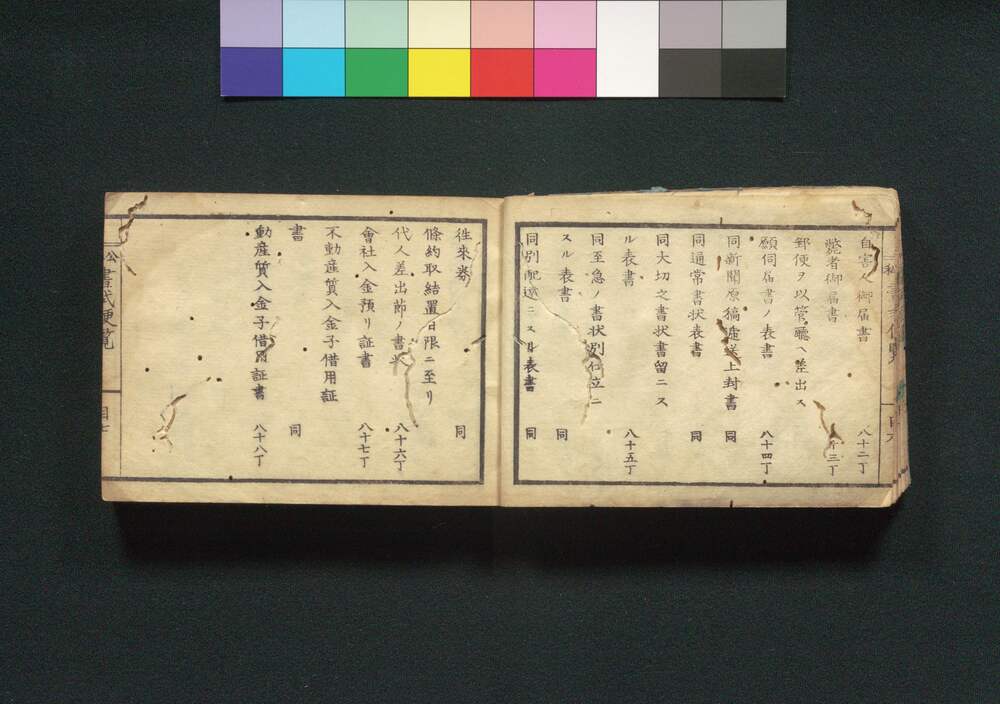 自害人御届書 八十二丁
斃者御届書 十三丁
郵便ヲ以管聽ヘ差出ス
願伺届書ノ表書 八十四丁
同新聞原稿逓送上封書 同
同通常書状表書 同
同大切之書状書留ニス
ル表書 八十五丁
同至急ノ書状別仕立ニ
スル表書 同
同別配達ニスル表書 同
徃來券 同
條約取結置日限ニ至リ
代人差出節ノ書 八十六丁
會社入金預リ証書 八十七丁
不動産質入金子借用証
書 同
動産質入金子借用証書 八十八丁
公書式便覧
目七